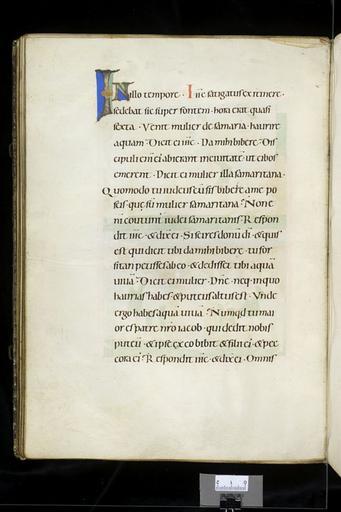 IN illo tempore · Iħc fatigatus ex itinere ·
sedebat sic super fontem · hora erat quasi
sexta · Venit mulier de samaria · haurire
aquam · Dicit ei iħc · Da mihi bibere · Dis
cipuli eni ei abierant in ciuitatē ut cibos
emerent · Dicit ei mulier illa samaritana ·
Quomodo tu iudeus cū sis bibere a me po
scis · quę sū mulier samaritana · Non e
nī coutunt iudei samaritanis · Respon
dit iħc · & dix ei · Si scires donū di · & quis
est qui dicit tibi da mihi bibere · tu for
sitan petisses ab eo · & dedisset tibi aquā
uiuā · Dicit ei mulier · Dn̄e · neq · in quo
haurias habes · & puteus altus est · Vnde
ergo habes aquā uiuā · Numqd tu mai
or es patre nr̄o iacob · qui dedit nobis
puteū · & ipse ex eo bibit · & filii ei · & pec
cora ei · Respondit iħc · & dix ei · Omnis